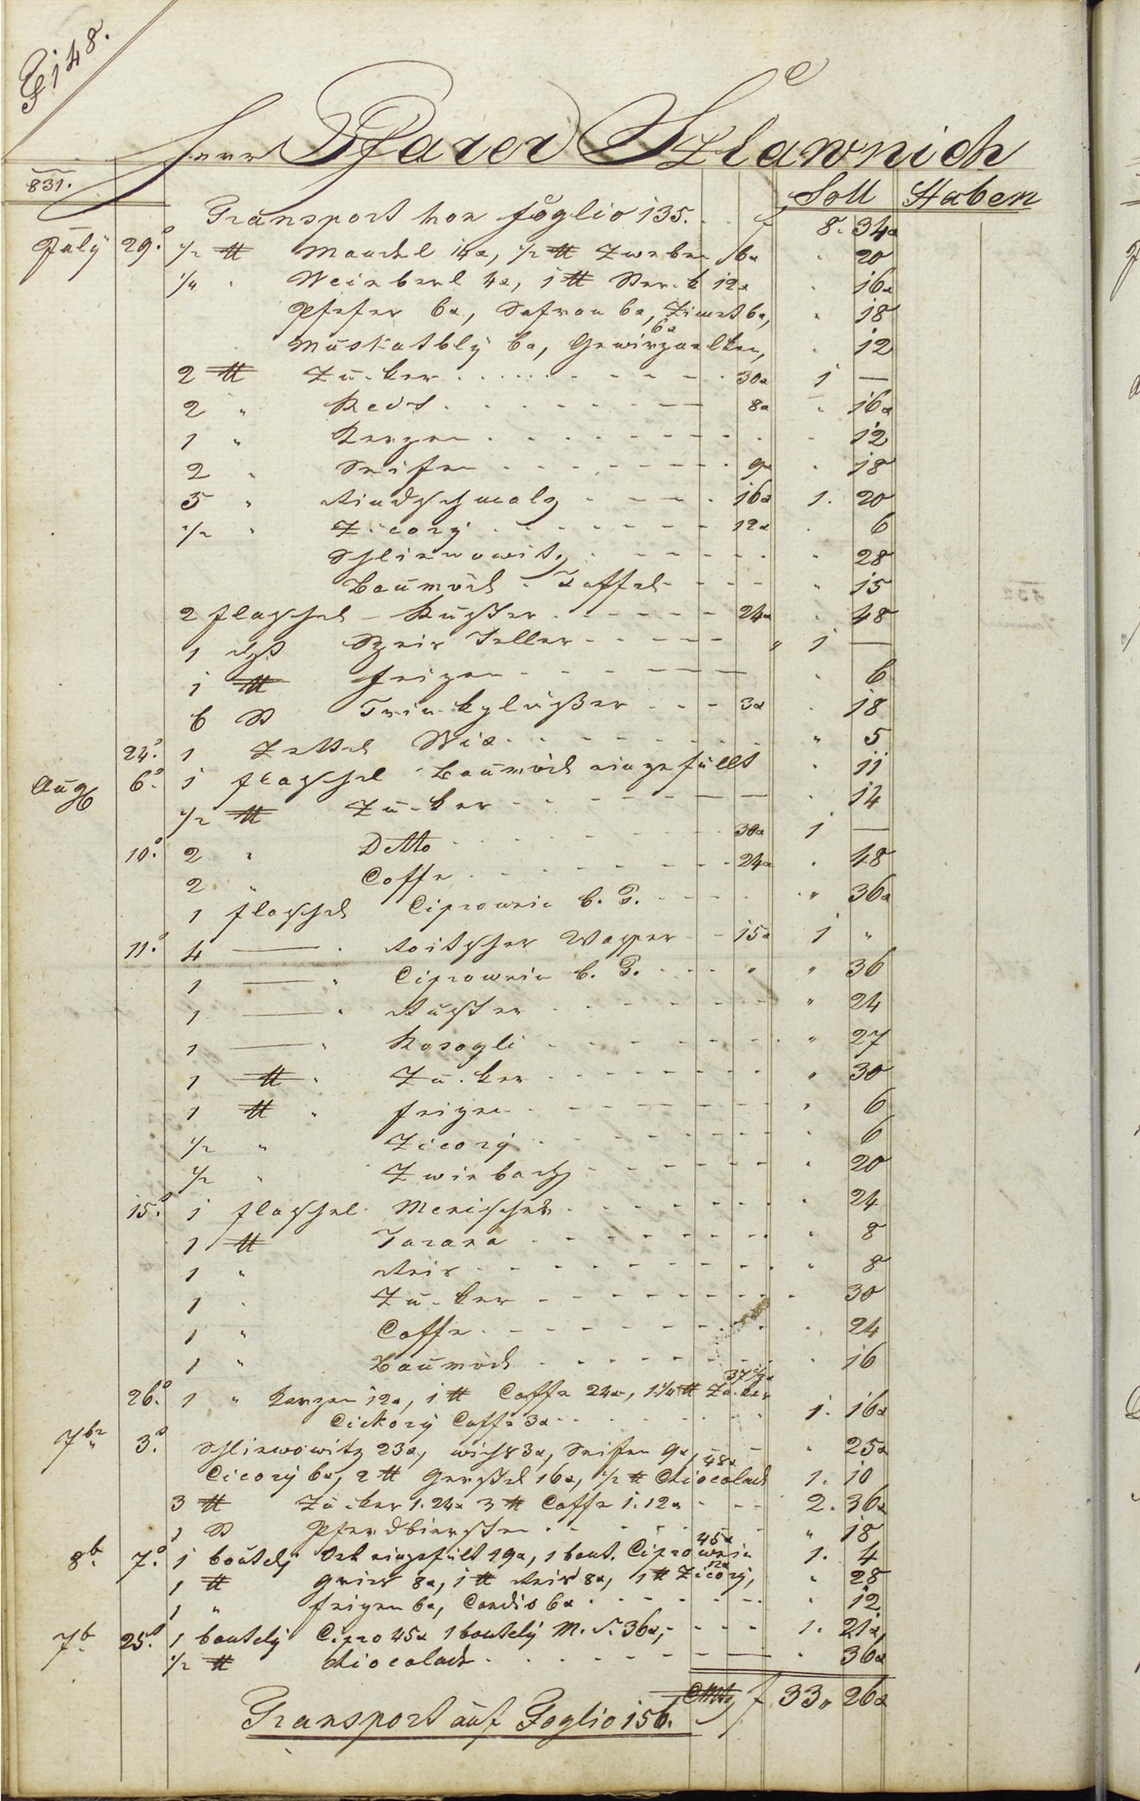 F 148.
Herr Pfarer Szlawnich
831. Soll Haben
Transport von foglio 135. f 8. 34x
July 29. 1/2 ℔ Mandel 14x, 1/2 ℔ Zweben 6x " 20
1/4 " Weinberl 4x, 1 ℔ 12x " 16x
Pfefer 6x, Safran 6x, Zimet 6x, " 18
Muskatbly 6x, Gewirznelken, 6x " 12
2 ℔ Zucker 30x 1 —
2 " Reis 8x " 16x
1 " Kerzen " 12
2 " Seifen 9x " 18
5 " Rindschmalz 16x 1. 20
1/2 " Zicory 12x " 6
Schliwowitz " 28
Baumöhl Taffel " 15
2 flaschel Ruster 24x " 48
1 Speis Teller " 1 —
1 ℔ feigen " 6
6 St Trinkgläßer 3x " 18
24. 1 Zettel Wix " 5
Aug 6. 1 flaschel Baumöhl eingefüllt " 11
1/2 ℔ Zucker " 14
10. 2 " Detto 30x 1 —
2 " Coffe 24x " 48
1 flaschel Ciprowein b. T. " 36x
11. 4 — " Roitscher Wasser 15x 1 "
1 — " Ciprowein b. T. " 36
1 — " Ruster " 24
1 — " Rosogli " 27
1 ℔ " Zucker " 30
1 ℔ " feigen " 6
1/2 " Zicory " 6
1/2 " Zwiebach " 20
15. 1 flaschel Menischer " 24
1 ℔ Tarana " 8
1 " Reis " 8
1 " Zucker 30
1 " Coffe " 24
1 " Baumöhl " 16
26. 1 " Kerzen 12x, 1 ℔ Coffe 24x, 1 1/4 ℔ Zucker 37 1/2x
Cickory Coffe 3x 1. 16x
7br 3. Schliwowitz 23x, wichs 3x, Seifen 9x, " 25x
Cicory 6x, 2 ℔ Gerstel 16x, 1/2 ℔ Chiocolad 48x 1. 10
3 ℔ Zucker 1.24x 3 ℔ Coffe 1.12x 2. 36x
1 St Pferdbiersten " 18
8b. 7. 1 boutely Oel eingefült 19x, 1 bout. Ciprowein 45x 1. 4
1 ℔ Gries 8x, 1 ℔ Reis 8x, 1 ℔ Zicory, 12x " 28
1 " feigen 6x, Candis 6x " 12
7b. 25. 1 boutely Cipro 45x 1 boutely M. S. 36x, 1. 21x,
1/2 ℔ Chiocolad " 36x
CMz f 33. 26x
Transport auf Foglio 156.